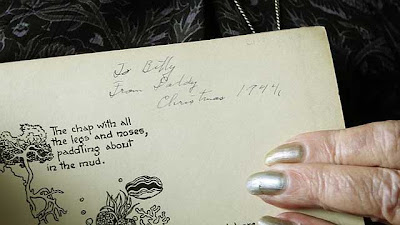 To Billy
From Daddy
Christmas 1944
The chap with all
the legs and noses,
paddling about
in the mud.